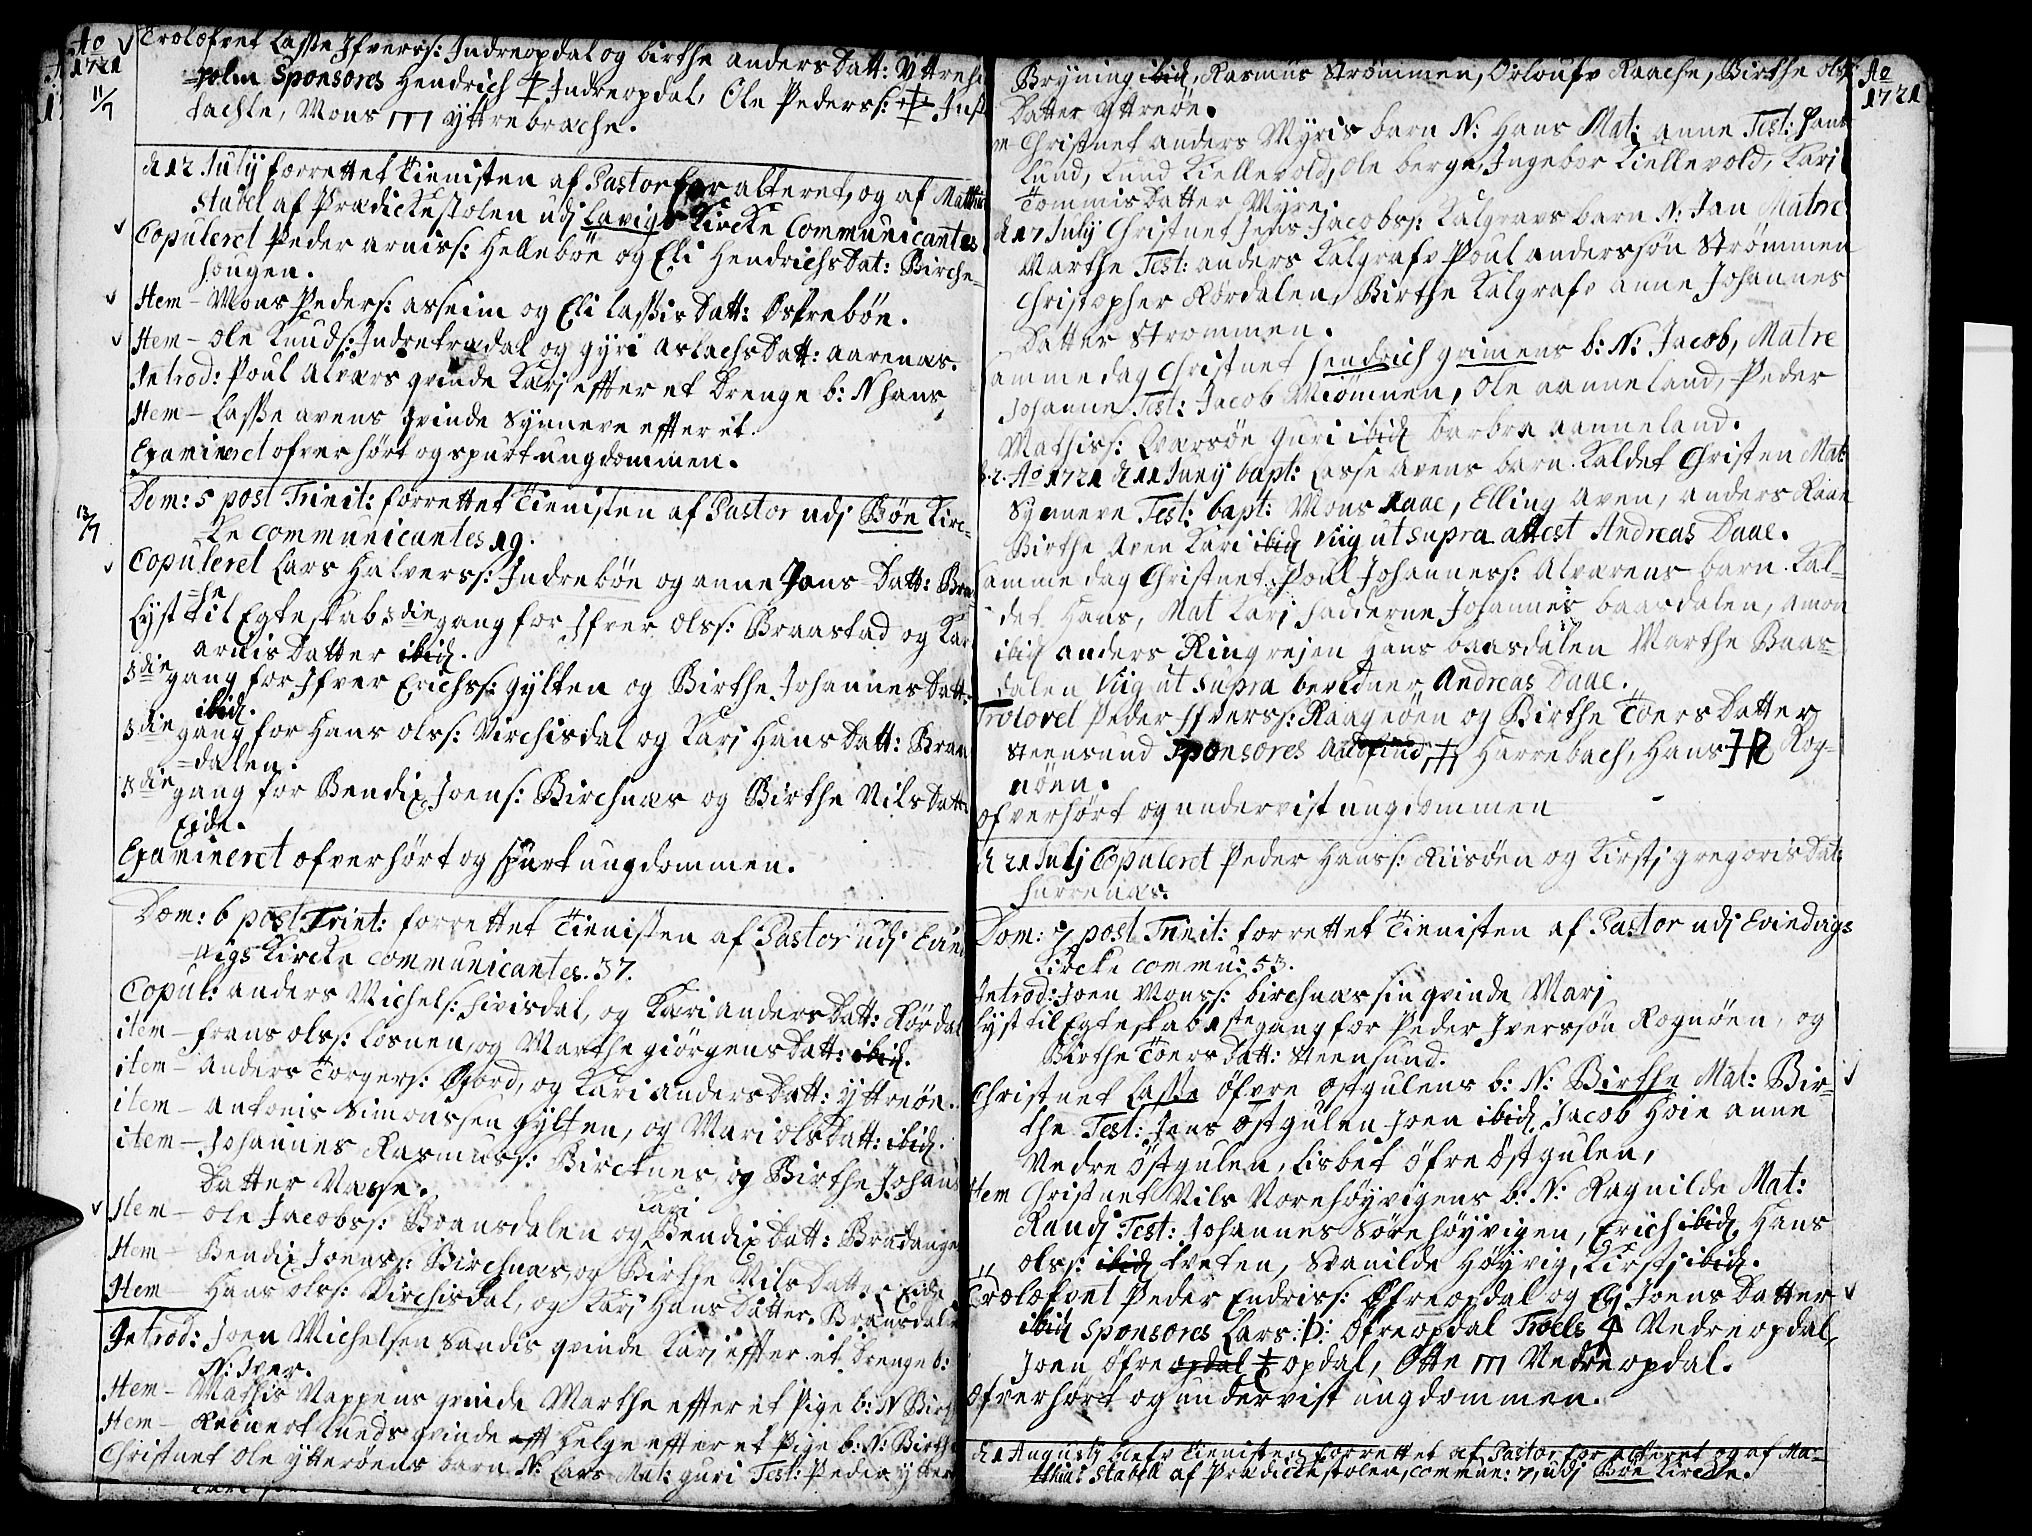 Ao
1721
11/7
Trolofvet Lasse Ifverss: Indreopdal og birthe anders Datt: Yttreho
=polm Sponsores Hendrich Indreopdal, Ole Peders:
tachle, Mons m yttrebrache.
d 12 July forrettet tienisten af Pastor for alteret, og af Matthi
Stabel af Prædickestolen udj Lavigs Kircke Communicantes
Copuleret Peder arniss: Helleböe og Eli Hendrichs Dat: Birche-
hougen.
Item - Mons Peders: asseim og Eli Lassis Datt: Østreböe.
Item - Ole Knuds: Indrefradal og gyri aslachs Datt: aarenæs.
Introd: Poul Alværs qvinde Karj effter et Drenge b: N hans,
Item - Lasse avens qvinde Synneve effter et
Examineret ofverhört og spurt ungdommen.
13/7
Dom: 5 post Trinit: forrettet tienisten af Pastor udj Böe Kirc-
Ke communicantes 19.
Copuleret Lars Halverss: Indreböe og anne Jans Datt: Bra
Lyst til Egteskab 3die gang for Ifver olss: Braastad og Kar
arnis Datter ibid.
3die gang for Ifver Erichss: Gylten og Birthe Johannes Datt
ibid.
3die gang for Hans olss: Virchisdal og Karj Hans Datt: Bran
=dalen.
3die gang for Bendix Joens: Birchnæs og Birthe Nils Datt:
Eide.
Examineret ofverhört og spurt ungdommen.
Dom: 6 post Trint: forrettet tienisten af Pastor udj Evind
vigs Kircke communicantes. 37.
Copul: anders Michels: hivisdal, og Kari anders Datt: Rördal
item - frans olss: Losnen, og Marthe giörgens Datt: ibid.
item - Anders Torgers: Gjord, og Kari anders Datt: yttreöe.
item - Antonis Simonssen Gylten, og Mari ols Datt: ibid.
item - Johannes Rasmuss: Birchnes og Birthe Johans
Datter Næsse.
Item - Ole Jacobss: Bransdalen og Kari Bendix Datt: Brudange
Item - Bendix Joenss: Birchnæs, og Birthe Nils Datter Eide
Item - Hans olss: Virchisdal, og Karj Hans Datter Bransdale
Introd: Joen Michelsen Sandis qvinde Karj effter et Drenge b:
N: Iver.
Item - Mathis Nappens qvinde Marthe effter et Pige b: N Birt
Item - Reinert Lunds qvinde Helge effter et Pige b: N: Birthe
Christnet Ole ytteröens barn N: Lars Mat: guri Test: Peder ytter
Ao
1721
Bryning ibid, Rasmus Strömmen, Orlouf Raache, Birthe ols
Datter yttreöe.
Christnet anders Myris barn N: Hans Mat: anne Test: Hans
Lund, Knud Kiellevold, Ole berge, Ingebor Kiellevold, Karj
Tommis Datter Myre.
d 17 July Christnet Jens Jacobss: Kalgravs barn N: Jan Matre
Marthe Test: anders Kalgrafv Poul anderssön Strömmen
Christopher Rördalen, Birthe Kalgrafv anne Johannes
Datter Strommen.
Samme dag Christnet Hendrich grimens b: N: Jacob, Matre
Johanne Test: Jacob Miömmen, Ole aanneland, Peder
Mathiss: Qvarsöe Guri ibid barbra aanneland.
Ao 1721 d 11 Juny bapt: Lasse avens barn Kaldet Christen Mat
Synneve Test: bapt: Mons Aaae, Elling Aven, anders Raae
Birthe Aven Kari ibid Viig ut supra attest Andreas Daae.
Samme dag Christnet Poul Johanness: Alværens barn Kal-
det Hans, Mat Karj fadderne Johannes baasdalen, Amon
ibid anders Ringrejen Hans baasdalen Marthe Baas-
dalen Viig ut Supra bevidner Andreas Daae.
Trolovet Peder Ifverss: Raagnöen og Birthe Toers Datter
Steensund Sponsores Audfind m Harrebach, Hans IR Rog-
nöen.
ofverhört og undervist ungdommen
d 21 July Copuleret Peder Hanss: Riisöen og Kirstj gregoris Dat:
Hurrenæs.
Dom: 7 post Trinit: forrettet tienisten af Pastor udj Evindvigs
Kircke commu: 53.
Introd: Joen Monss: birchnæs sin qvinde Marj
Lyst til Egteskab 1ste gang for Peder Iverssön Rognöen, og
Birthe Toers Datt: Steensund.
Christnet Lasse öfvre östgulens b: N: Birthe Mat: Bir-
the Test: Jens östgulen Joen ibid, Jacob Hoie anne
Nedre östgulen, Lisbet öfre östgulen,
Item Christnet Nils Norehöyvigens b: N: Ragnilde Mat:
Randj Test: Johannes Sörehöyvigen, Erich ibid, Hans
olss: ibid tveten, Svanilde höyvig, Kirstj ibid.
Trolofvet Peder Endriss: Öfreopdal og Elj Joens Datter
ibid Sponsores Lars: D: öfreopdal Troels 4 Nedreopdal,
Joen öfre opdal opdal, Otte m Nedreopdal.
Ofverhört og undervist ungdommen.
d 1 Augusty blefv tienisten forrettet af Pastor for alteret og af Ma-
thias Stabell af Prædickestolen, commu: 7, udj Böe Kircke.